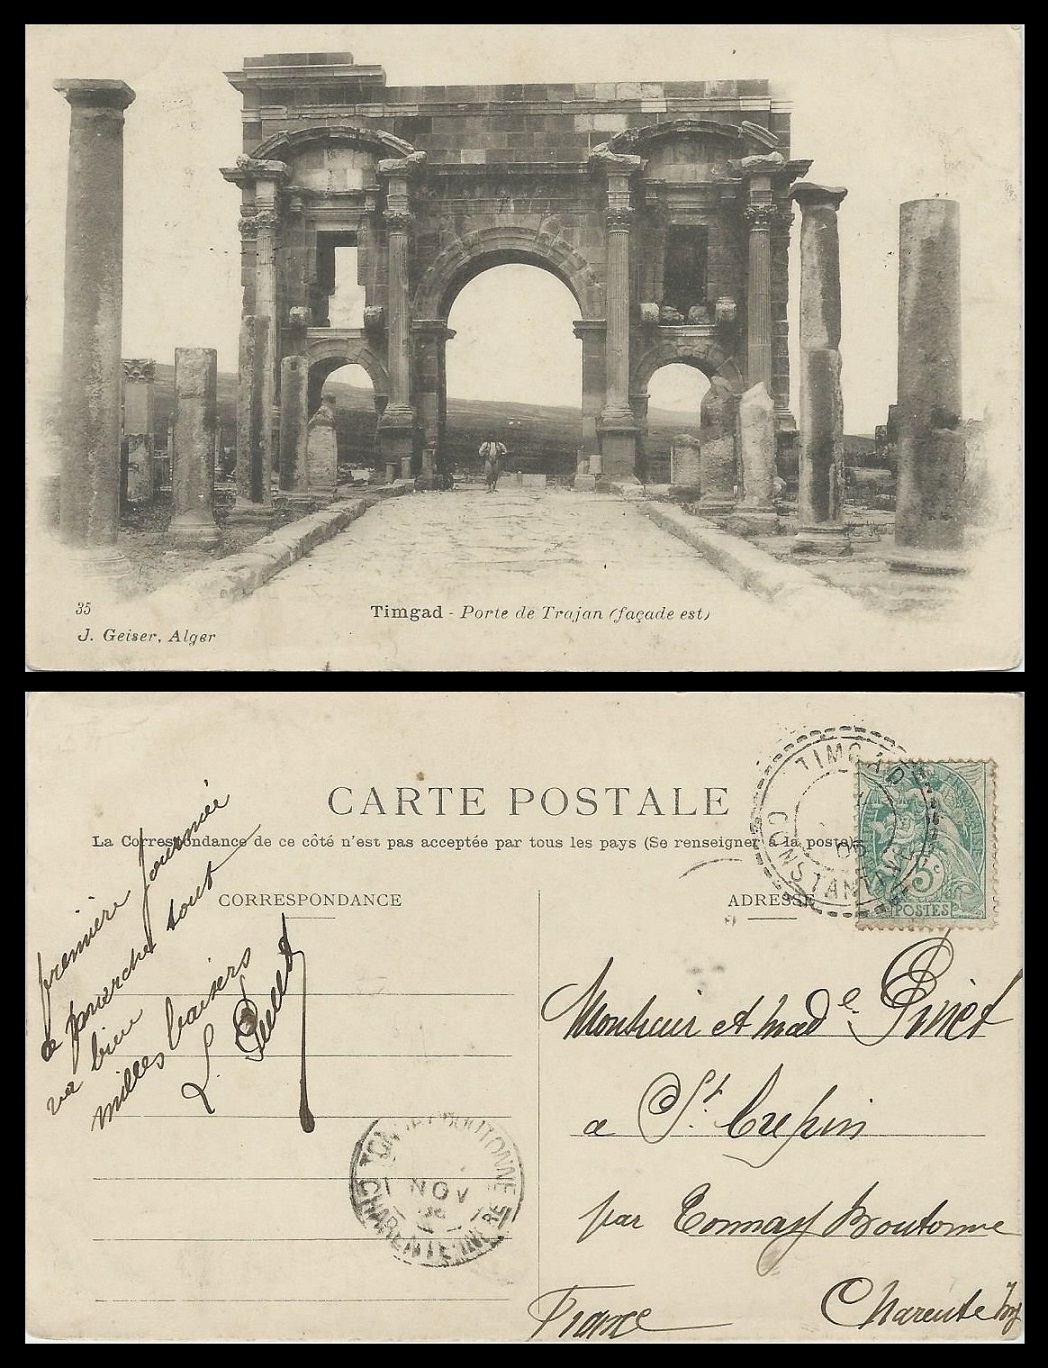 35
Timgad - Porte de Trajan (façade est)
J. Geiser, Alger
CARTE POSTALE
La Correspondance de ce côté n'est pas acceptée par tous les pays (Se renseigner à la poste)
CORRESPONDANCE
ADRESSE
TIMGAD
CONSTANTINE
05
5c
POSTES
première journée
de marche tout
va bien
milles baisers
L.
Monsieur et Made Pinet
a St. Crepin
par Tonnay Boutonne
Charente Inf
France
TONNAY-BOUTONNE
NOV
CHARENTE INFRE